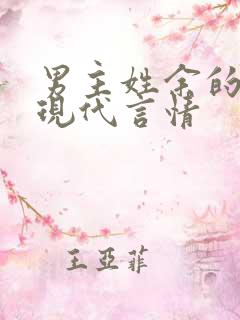 男主姓余的
现代言情
王亚菲